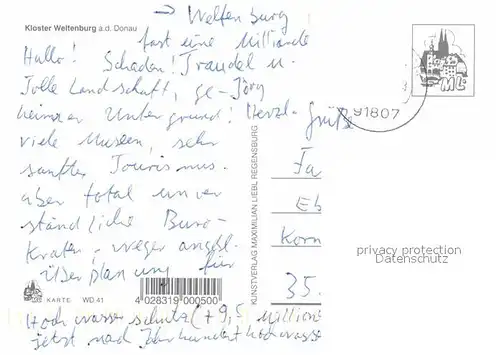 → Weltenburg
Kloster Weltenburg a.d. Donau
fast eine Milliarde
Hallo! Schaden! Traudel u.
Tolle Landschaft, ge- Jörg
heimer Untergrund! Herzl.
Grüße
viele Museen, sehr
sanfter Tourismus.
aber total unver
ständliche Büro-
kraten, wegen angebl.
Überplanung für
Hochwasserschutz (+ 9,5 Millionen
jetzt nach Jahrhunderthochwasser
91807
ML
KUNSTVERLAG MAXIMILIAN LIEBL REGENSBURG
Fa
Eb
Korn
35.
privacy protection
Datenschutz
KARTE: WD.41
4 028319 000500